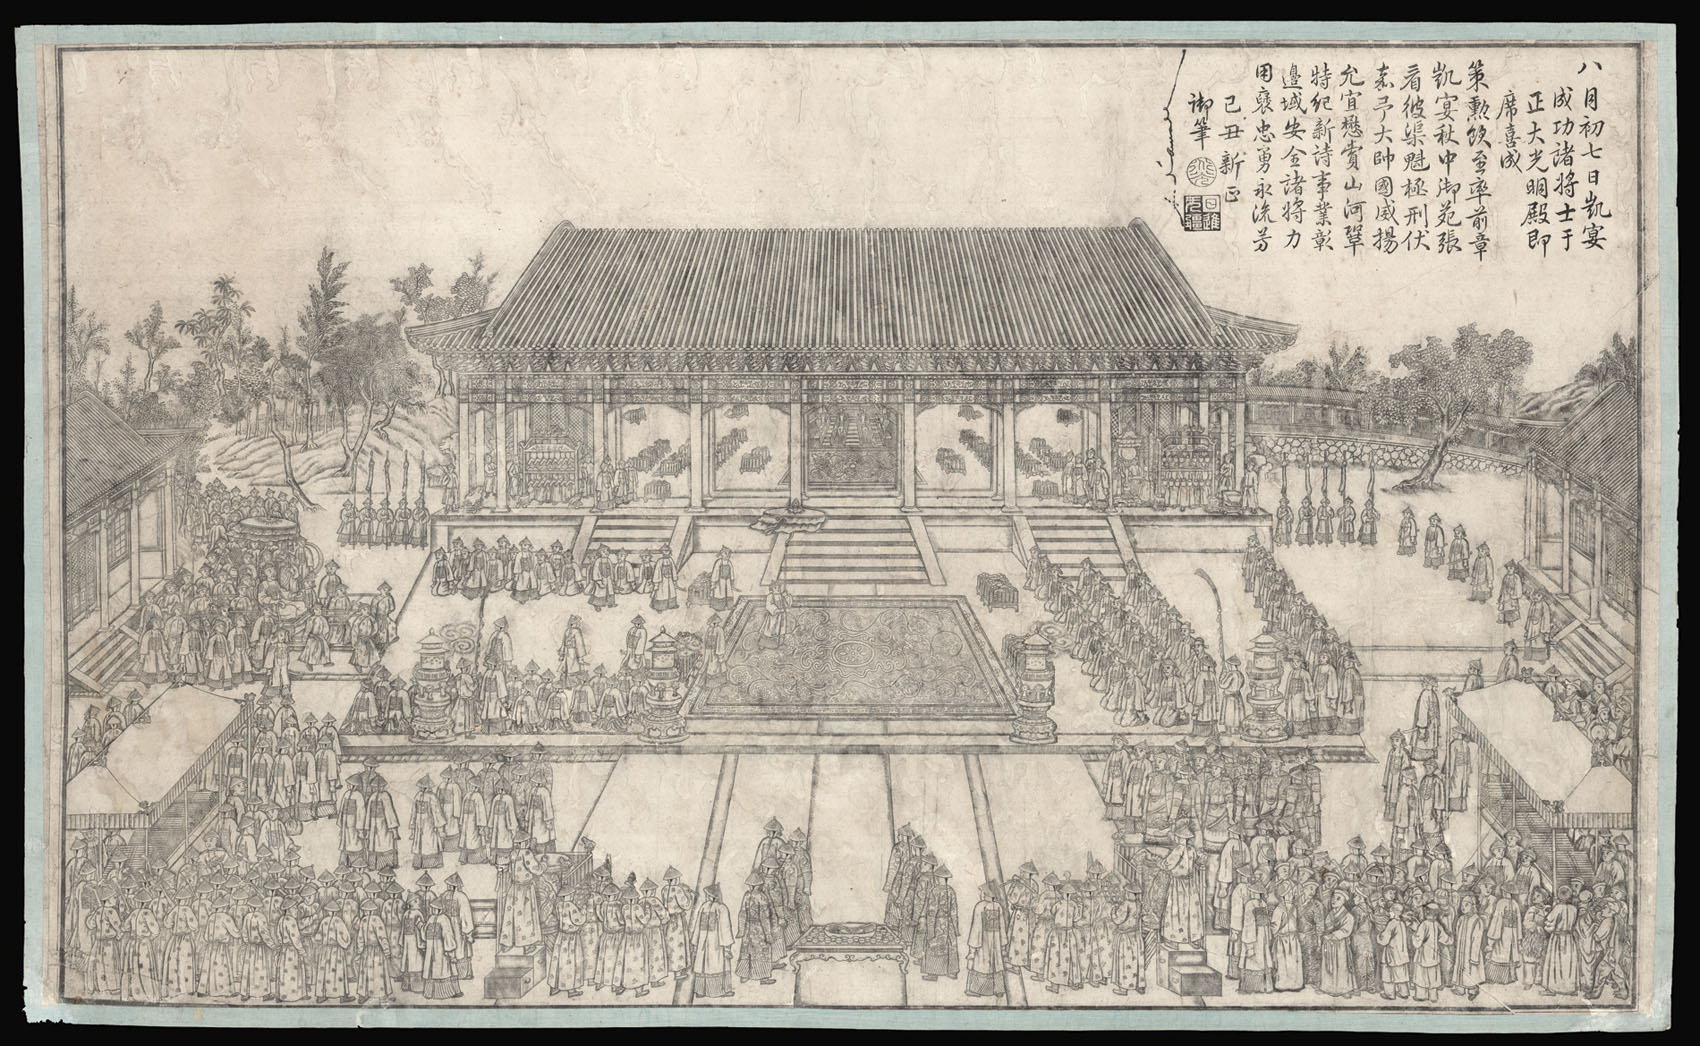 八月初七日凱宴
成功諸將士于
正大光明殿即
席喜成
策勲飲至率前章
凱宴秋中御苑張
看彼渠魁極刑伏
嘉予大帥國威揚
允宜懋賞山河鞏
特紀新詩事業彰
邊域安全諸將力
用襃忠勇永流芳
己丑新正
御筆
日進
无疆